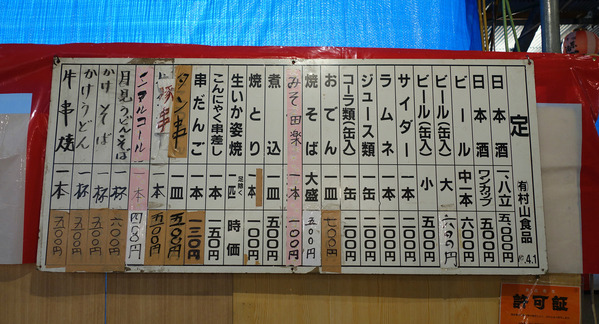 定
有村山食品
4.1
日本酒 一.八立 五,〇〇〇円
日本酒 ワンカップ 五〇〇円
ビール 中一本 六〇〇円
ビール(缶入) 大
ビール(缶入) 小 五〇〇円
サイダー 一本 二〇〇円
ラムネ 一本 二〇〇円
ジュース類 一缶 二〇〇円
コーラ類(缶入) 一缶 二〇〇円
おでん 一皿 七〇〇円
焼そば 大盛 五〇〇円
みそ田楽 一本 一〇〇円
煮込 一皿 五〇〇円
焼とり 一本 一〇〇円
生いか姿焼 足除く 一匹 時価
こんにゃく串差し 一本 一五〇円
串だんご 一本 一三〇円
タン串 一皿 五〇〇円
豚串 一本 五〇〇円
ノンアルコール 一本 四〇〇円
月見うどんそば 一杯 六〇〇円
かけそば 一杯 五〇〇円
かけうどん 一杯 五〇〇円
牛串焼 一本 五〇〇円
許可証